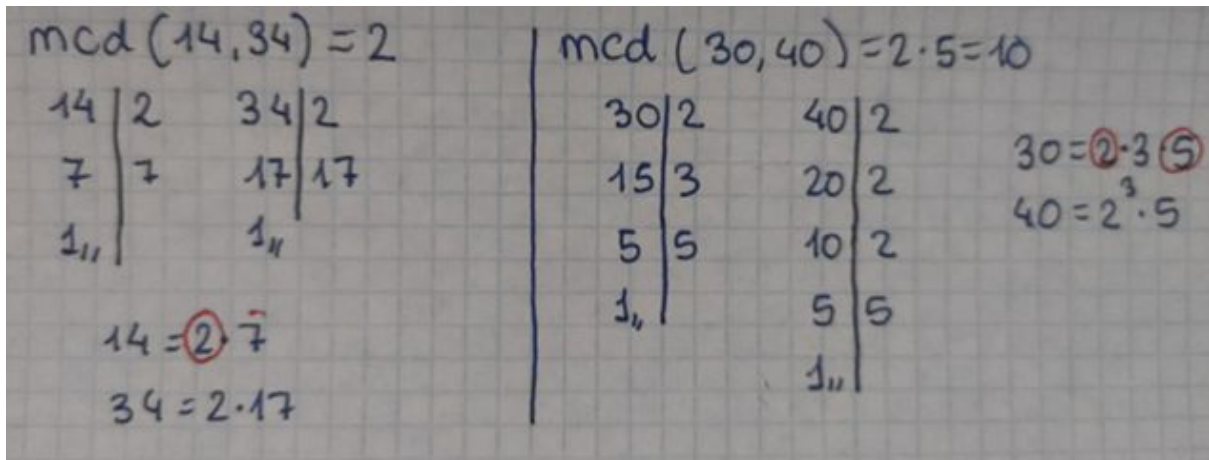 mcd (14,34) = 2
14 | 2
7 | 7
1,,
34 | 2
17 | 17
1,,
14 = 2 · 7
34 = 2 · 17
mcd (30,40) = 2 · 5 = 10
30 | 2
15 | 3
5 | 5
1,,
40 | 2
20 | 2
10 | 2
5 | 5
1,,
30 = 2 · 3 · 5
40 = 2³ · 5